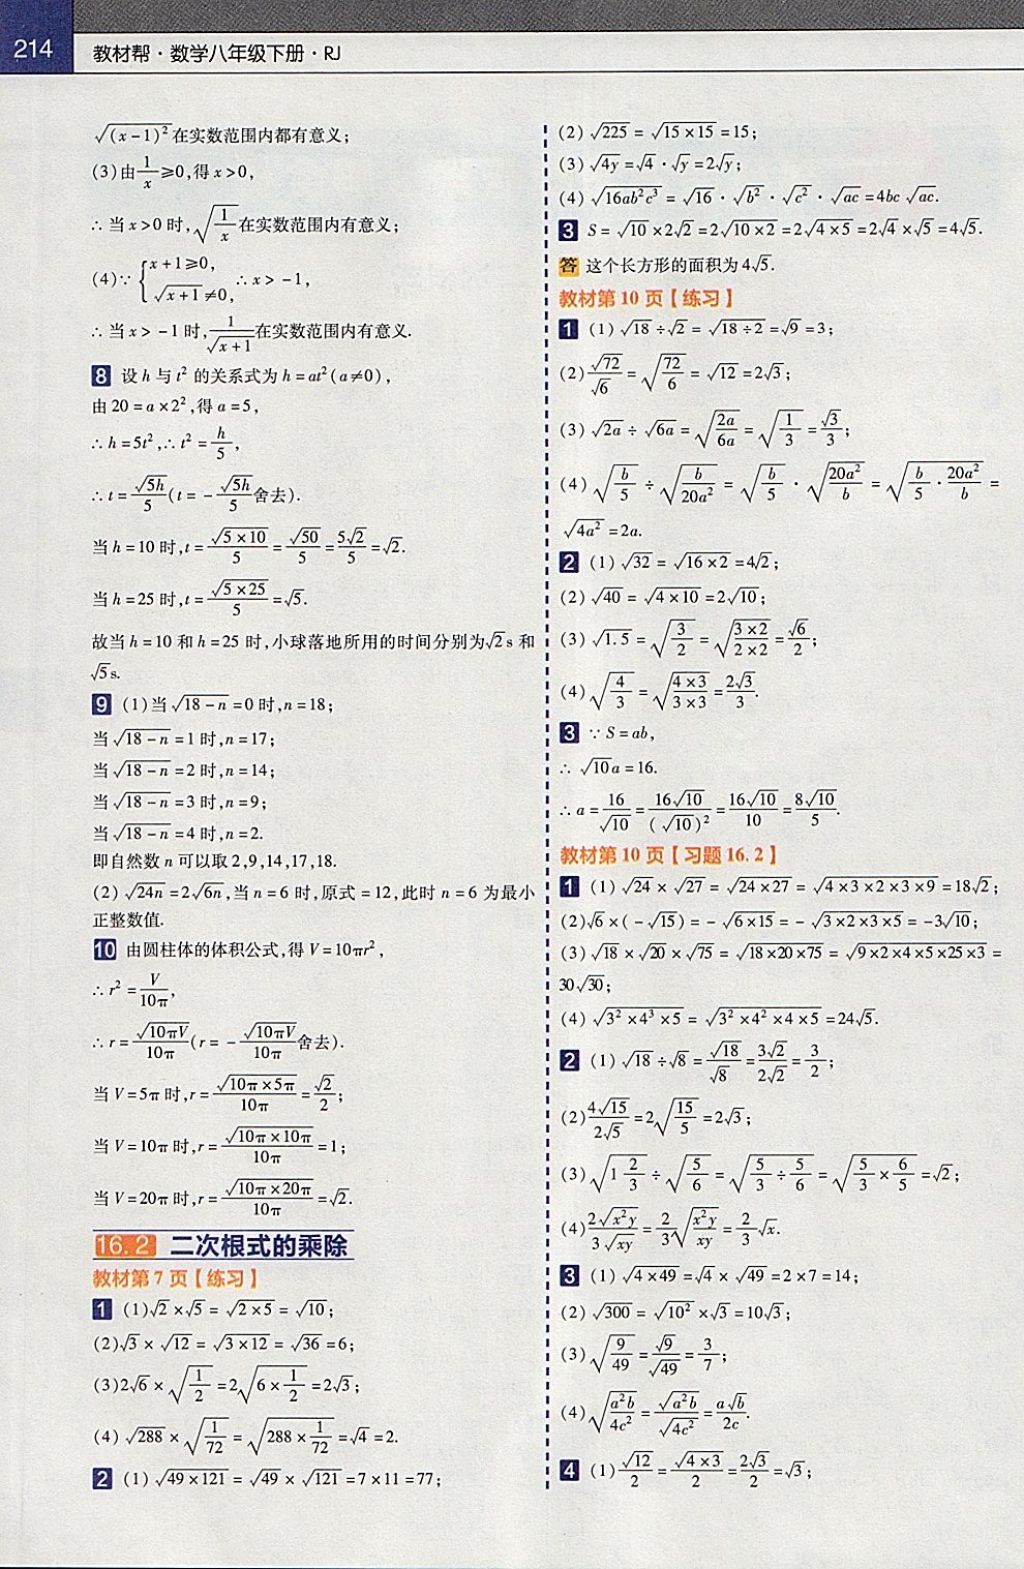 214
教材帮·数学八年级下册·RJ
√(x-1)² 在实数范围内都有意义;
(3)由 1/x ≥0,得 x>0,
∴当 x>0 时,√(1/x) 在实数范围内有意义;
(4)∵ { x+1≥0, √(x+1)≠0, ∴x>-1,
∴当 x>-1 时, 1/√(x+1) 在实数范围内有意义.
8 设 h 与 t² 的关系式为 h=at²(a≠0),
由 20=a×2²,得 a=5,
∴h=5t²,∴t²=h/5,
∴t=√(5h)/5(t=-√(5h)/5舍去).
当 h=10 时,t=√(5×10)/5=√50/5=5√2/5=√2.
当 h=25 时,t=√(5×25)/5=√5.
故当 h=10 和 h=25 时,小球落地所用的时间分别为√2 s 和
√5 s.
9 (1)当 √(18-n)=0 时,n=18;
当 √(18-n)=1 时,n=17;
当 √(18-n)=2 时,n=14;
当 √(18-n)=3 时,n=9;
当 √(18-n)=4 时,n=2.
即自然数 n 可以取 2,9,14,17,18.
(2)√(24n)=2√(6n),当 n=6 时,原式=12,此时 n=6 为最小
正整数值.
10 由圆柱体的体积公式,得 V=10πr²,
∴r²=V/(10π),
∴r=√(10πV)/(10π)(r=-√(10πV)/(10π)舍去).
当 V=5π 时,r=√(10π×5π)/(10π)=√2/2;
当 V=10π 时,r=√(10π×10π)/(10π)=1;
当 V=20π 时,r=√(10π×20π)/(10π)=√2.
16.2 二次根式的乘除
教材第 7 页【练习】
1 (1)√2×√5=√(2×5)=√10;
(2)√3×√12=√(3×12)=√36=6;
(3)2√6×√(1/2)=2√(6×1/2)=2√3;
(4)√288×√(1/72)=√(288×1/72)=√4=2.
2 (1)√(49×121)=√49×√121=7×11=77;
(2)√225=√(15×15)=15;
(3)√(4y)=√4·√y=2√y;
(4)√(16ab²c³)=√16·√(b²)·√(c²)·√(ac)=4bc√(ac).
3 S=√10×2√2=2√(10×2)=2√(4×5)=2√4×√5=4√5.
答 这个长方形的面积为 4√5.
教材第 10 页【练习】
1 (1)√18÷√2=√(18÷2)=√9=3;
(2)√72/√6=√(72/6)=√12=2√3;
(3)√(2a)÷√(6a)=√(2a/6a)=√(1/3)=√3/3;
(4)√(b/5)÷√(b/20a²)=√(b/5)·√(20a²/b)=√(b/5·20a²/b)=
√(4a²)=2a.
2 (1)√32=√(16×2)=4√2;
(2)√40=√(4×10)=2√10;
(3)√1.5=√(3/2)=√((3×2)/(2×2))=√6/2;
(4)√(4/3)=√((4×3)/(3×3))=2√3/3.
3 ∵S=ab,
∴√10a=16.
∴a=16/√10=16√10/(√10)²=16√10/10=8√10/5.
教材第 10 页【习题 16.2】
1 (1)√24×√27=√(24×27)=√(4×3×2×3×9)=18√2;
(2)√6×(-√15)=-√(6×15)=-√(3×2×3×5)=-3√10;
(3)√18×√20×√75=√(18×20×75)=√(9×2×4×5×25×3)=
30√30;
(4)√(3²×4³×5)=√(3²×4²×4×5)=24√5.
2 (1)√18÷√8=√18/√8=3√2/2√2=3/2;
(2)4√15/2√5=2√(15/5)=2√3;
(3)√(1 2/3)÷√(5/6)=√(5/3÷5/6)=√(5/3×6/5)=√2;
(4)2√(x²y)/3√(xy)=2/3√(x²y/xy)=2/3√x.
3 (1)√(4×49)=√4×√49=2×7=14;
(2)√300=√(10²)×√3=10√3;
(3)√(9/49)=√9/√49=3/7;
(4)√(a²b/4c²)=√(a²b)/√(4c²)=a√b/2c.
4 (1)√12/2=√(4×3)/2=2√3/2=√3;